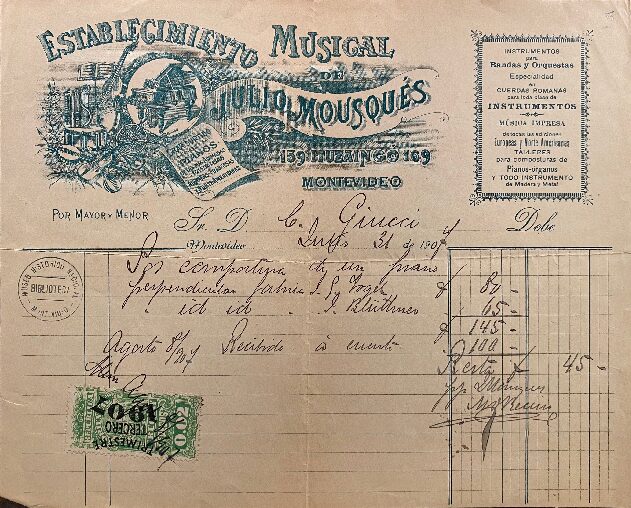 ESTABLECIMIENTO MUSICAL
DE
JULIO MOUSQUÉS
PIANOS
139 ITUZAINGO 169
MONTEVIDEO
INSTRUMENTOS
para
Bandas y Orquestas
Especialidad
en
CUERDAS ROMANAS
para toda clase de
INSTRUMENTOS
MÚSICA IMPRESA
de todas las ediciones
Europeas y Norte Americanas
TALLERES
para composturas de
Pianos-órganos
Y TODO INSTRUMENTO
de Madera y Metal
POR MAYOR Y MENOR
Sr. D. C. Giucci Debe
Montevideo Julio 21 de 1907
Por compostura de un piano
perpendicular $ 80 -
id id Blüthner $ 65 -
$ 145 -
Agosto 8/907 Recibido à cuenta $ 100 -
Resta $ 45 -
MUSEO HISTORICO NACIONAL
BIBLIOTECA
TRIMESTRE
TERCERO
1907